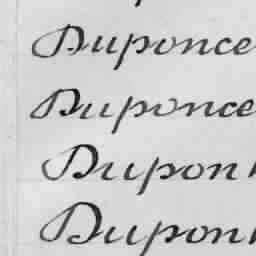 Duponce
Duponce
Dupon
Dupon